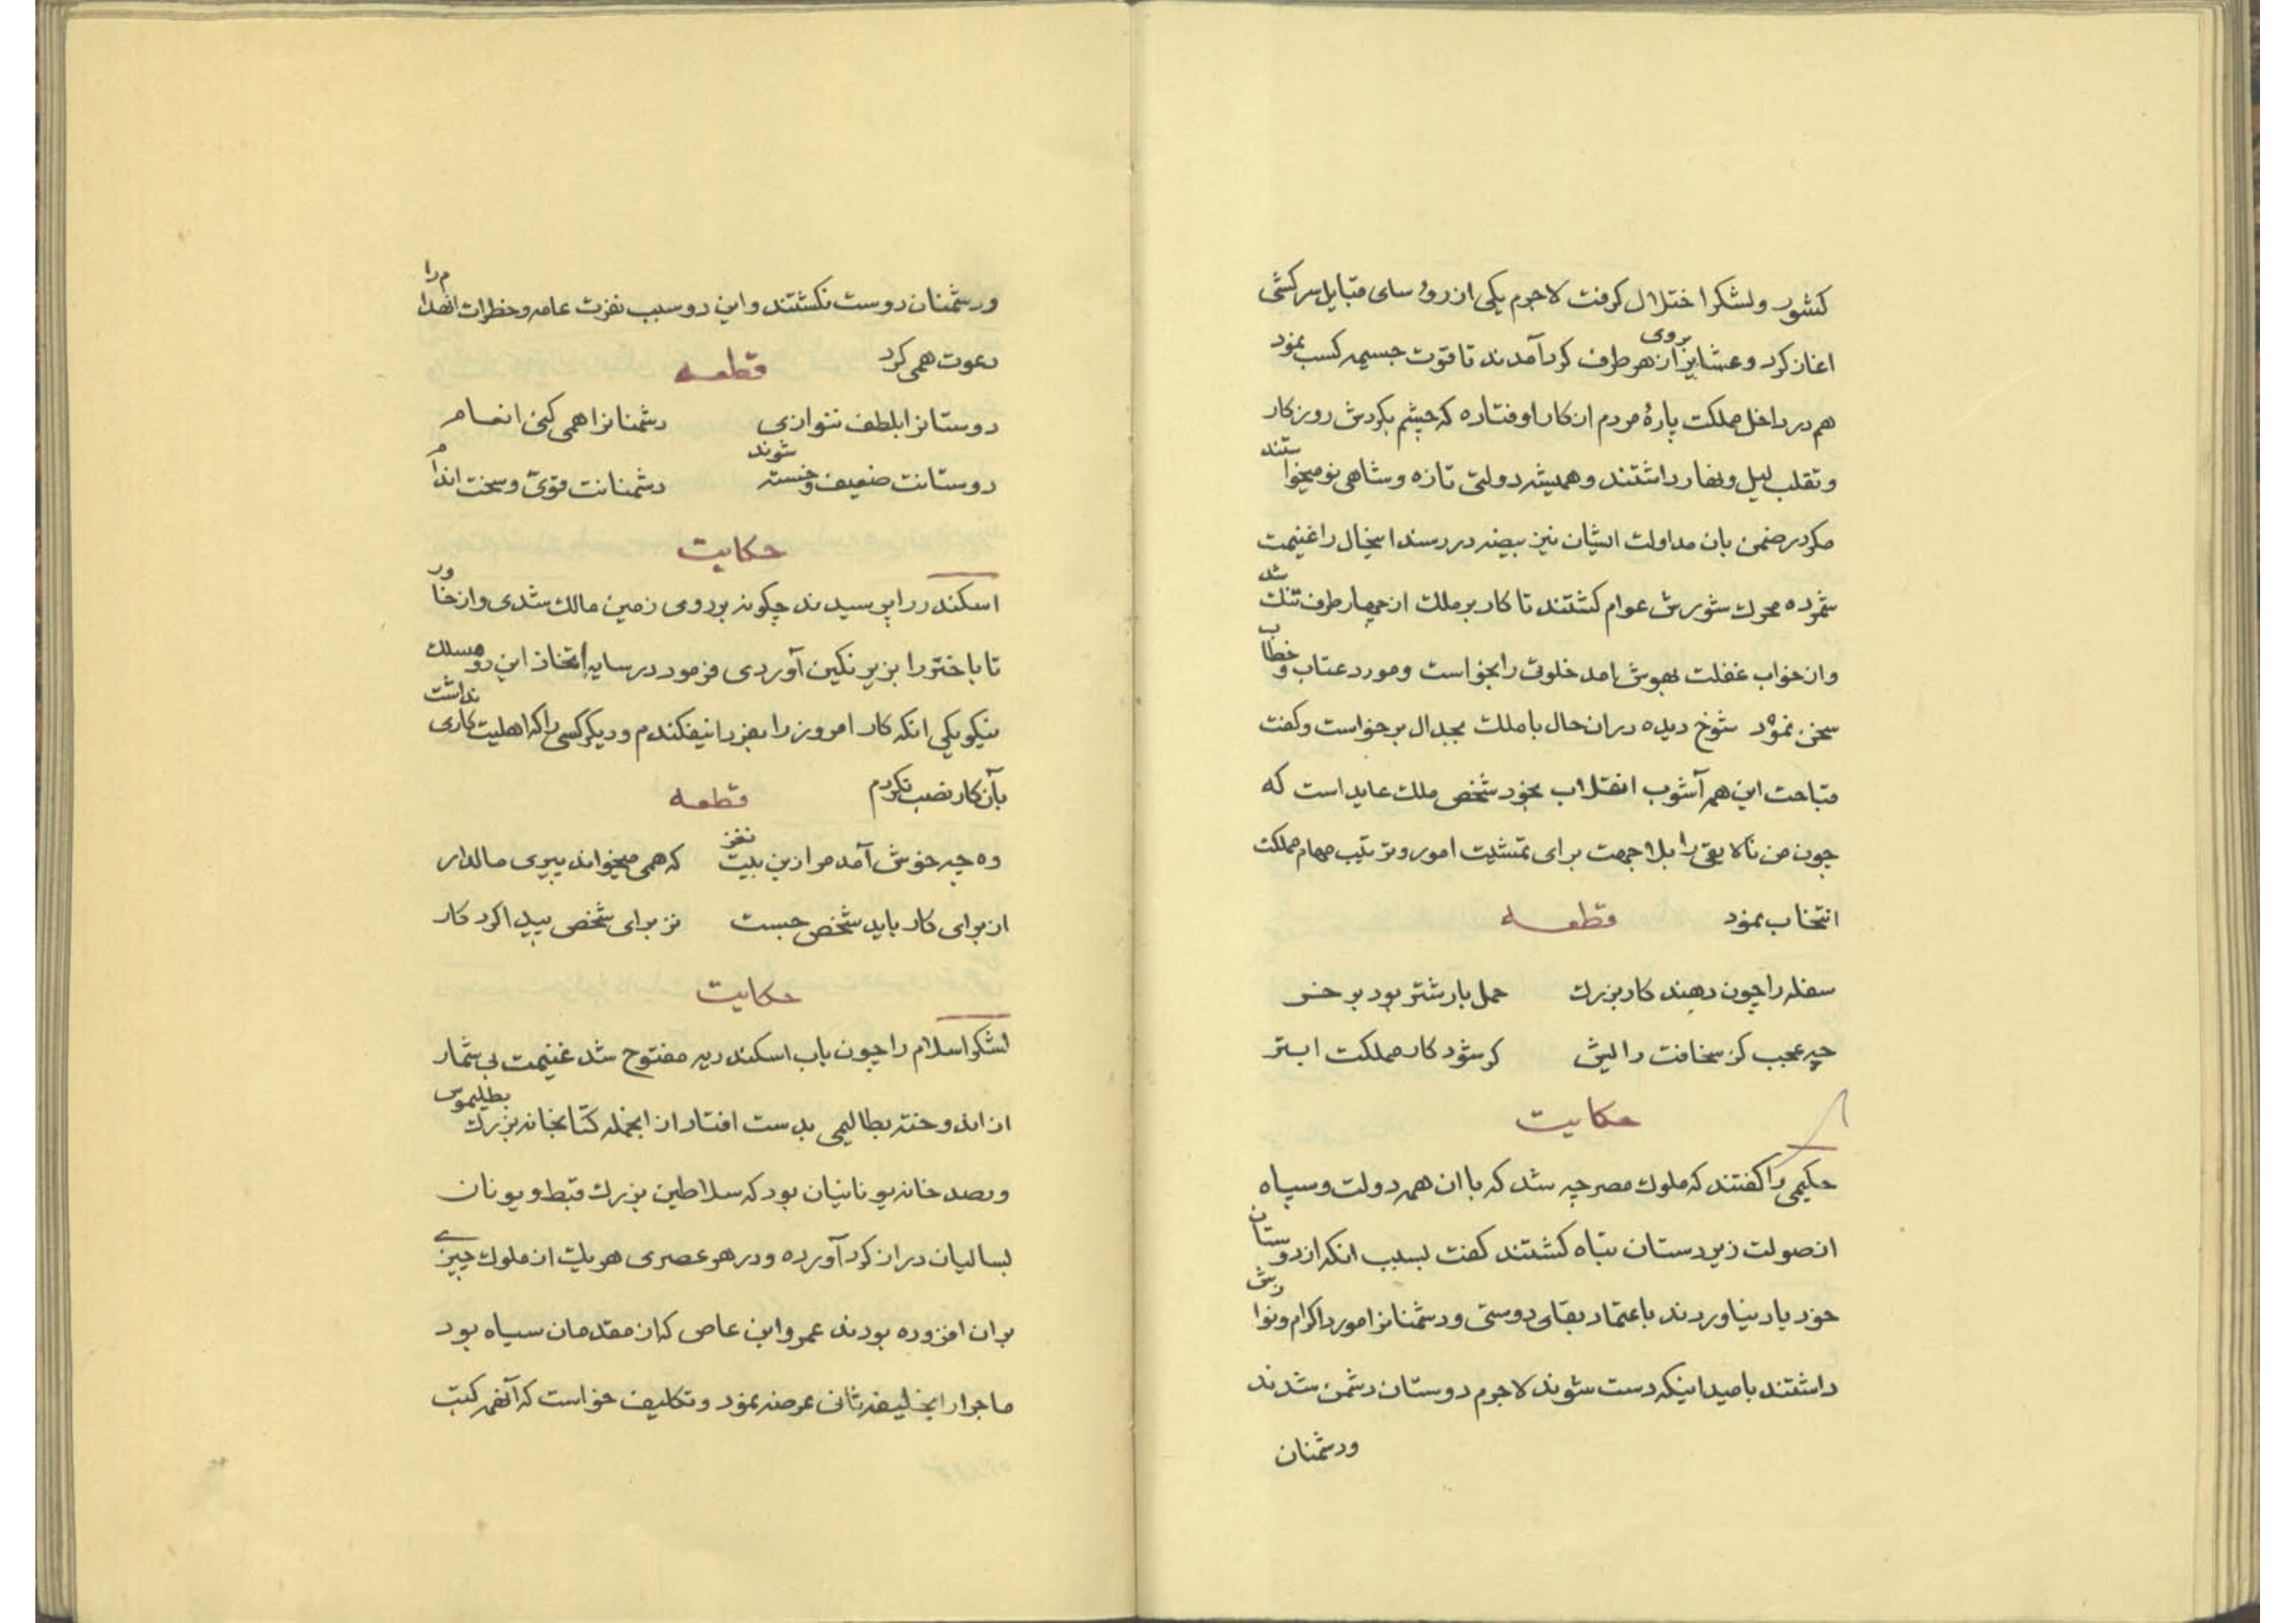 کشور ولشکر اختلال کرفت لاجرم یکی از رؤسای قبایل سرکشی
اغاز کرد و عشایر از هر طرف بروی کرد آمدند تا قوت جسیمه کسب نمود
هم در داخل مملکت پارهٔ مردم از کار اوفتاده که چشم بکردش روزکار
وتقلب لیل ونهار داشتند وهمیشه دولتی تازه وشاهی نو میخواستند
مکر در ضمن بان مداولت ایشان نیز بیضه در رسد اینحال را غنیمت
شمرده محرك شورش عوام کشتند تا کار بر ملك از چهار طرف تنك شد
واز خواب غفلت بهوش امد خلوتی را بخواست ومورد عتاب وخطاب
سخن نمود شوخ دیده در ان حال با ملك بجدال برخواست وکفت
قباحت این همه آشوب انقلاب بخود شخص ملك عاید است که
چون من نالایقی را بلاجهت برای تمشیت امور وترتیب مهام مملکت
انتخاب نمود قطعه
سفله را چون دهند کار بزرك حمل بار شتر بود بر خر
چه عجب کز سخافت رالیش کر شود کار مملکت ابتر
حکایت
حکیمی را کفتند که ملوك مصر چه شد که با ان همه دولت وسپاه
از صولت زیردستان تباه کشتند کفت بسبب انکه از دوستان
خود یاد نیاوردند باعتماد بقای دوستی ودشمنانرا مورد اکرام ونوازش
داشتند بامید اینکه دست شوند لاجرم دوستان دشمن شدند
ودشمنان
ودشمنان دوست نکشتند واین دو سبب نفرت عامه وخطرات انهدام را
دعوت همی کرد قطعه
دوستانرا بلطف ننوازی دشمنانرا همی کنی انعام
دوستانت ضعیف وخسته شوند دشمنانت قوی وسخت اندام
حکایت
اسکندر را پرسیدند چکونه بر روی زمین مالك شدی واز خاور
تا باختر را بزیر نکین آوردی فرمود در سایه اتخاذ این دو مسلك
نیکو یکی انکه کار امروز را بفردا نیفکندم ودیکر کسی را که اهلیت کاری نداشت
بآن کار نصب نکردم قطعه
وه چه خوش آمد مرا زین بیت نغز که همی میخواند پیری مالدار
از برای کار باید شخص جست نز برای شخص پیدا کرد کار
حکایت
لشکر اسلام را چون باب اسکندریه مفتوح شد غنیمت بی شمار
از اندوخته بطالیمی بدست افتاد از انجمله کتابخانه بزرك بطلیموس
ورصد خانه یونانیان بود که سلاطین بزرك قبط ویونان
بسالیان دران کرد آورده ودر هر عصری هریك از ملوك چیزے
بران افزوده بودند عمرو ابن عاص که از مقدمان سپاه بود
ماجرا را بخلیفه ثانی عرضه نمود وتکلیف خواست که آنهمه کتب